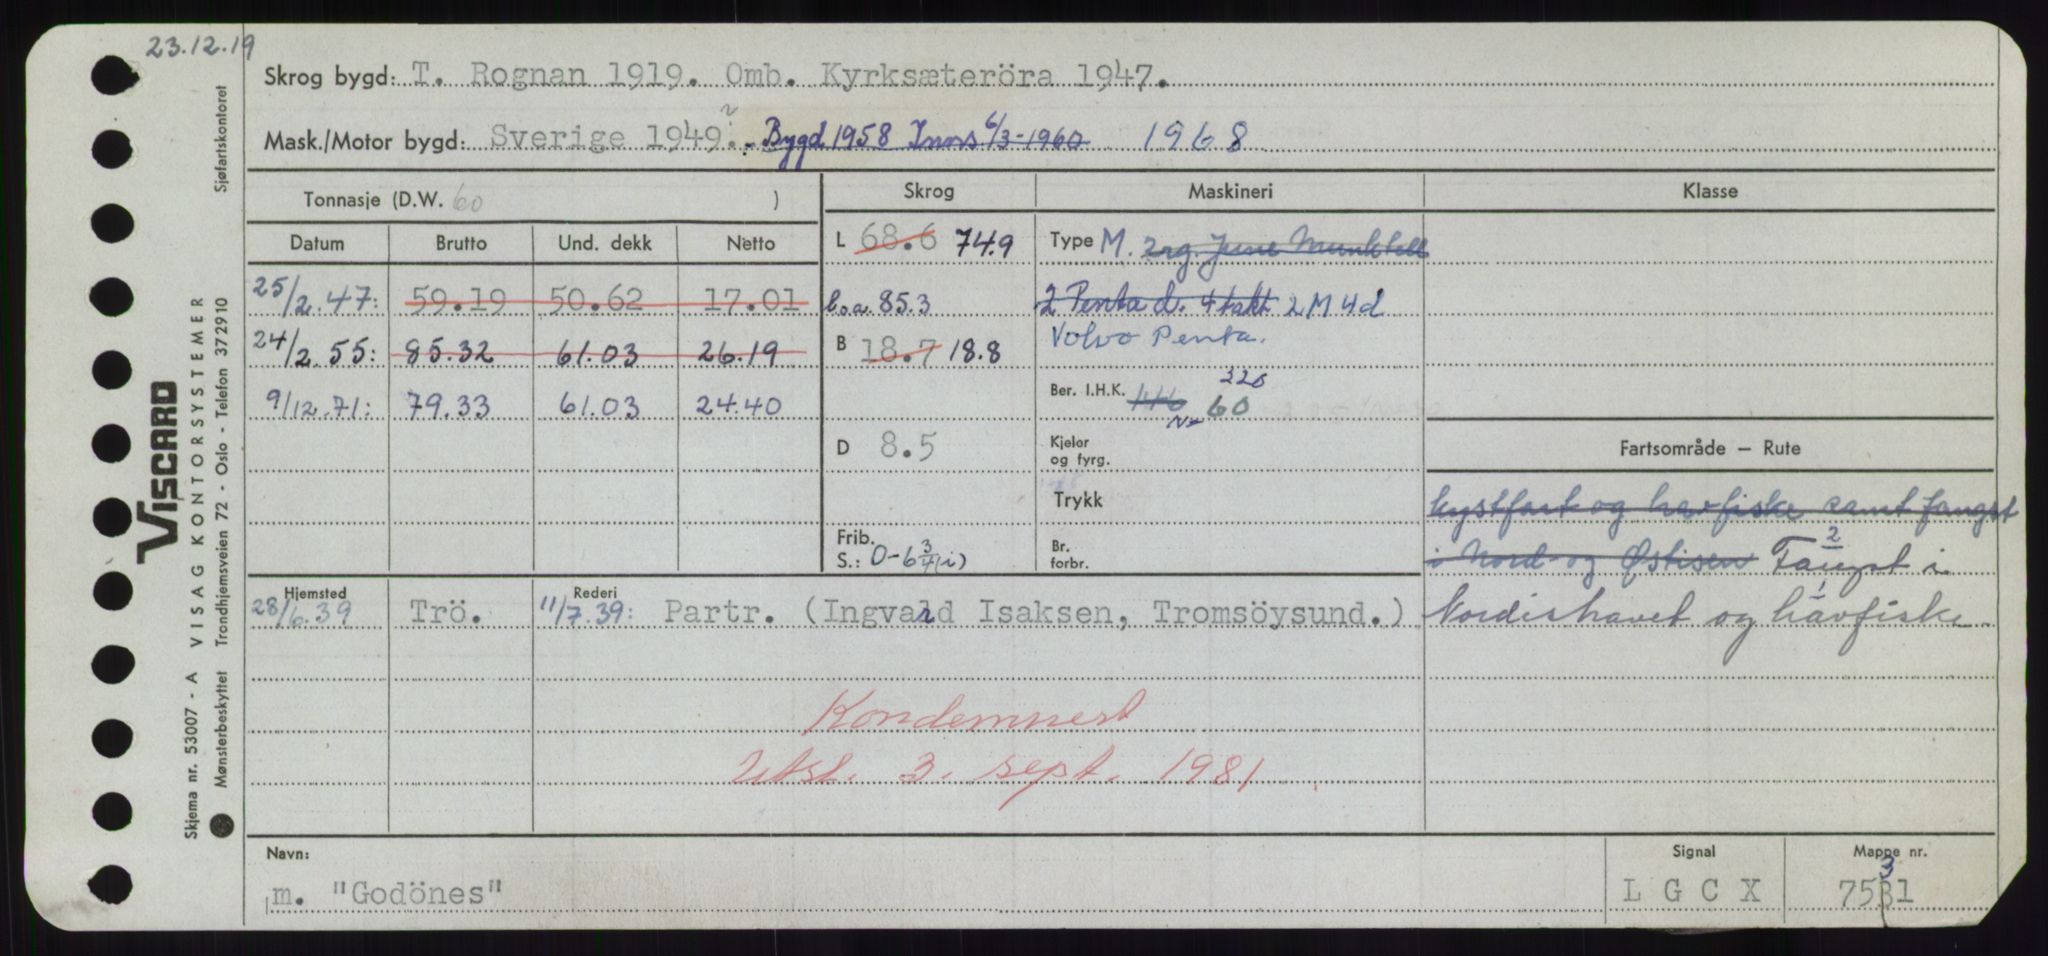 23.12.19
Skrog bygd: T. Rognan 1919. Omb. Kyrksæteröra 1947.
Mask./Motor bygd: Sverige 1949?. Bygd 1958 Inns 6/3-1960 1968
Tonnasje (D.W. 60 ) Skrog Maskineri Klasse
Datum Brutto Und. dekk Netto L 68.6 74.9 Type M. 2rg. June Munktell
25/2.47: 59.19 50.62 17.01 l.o.a. 85.3 2 Penta d. 4takt 2 M 4d
24/2.55: 85.32 61.03 26.19 B 18.7 18.8 Volvo Penta.
9/12.71: 79.33 61.03 24.40 Ber. I.H.K. 220
60
D 8.5 Kjeler og fyrg. Fartsområde — Rute
Trykk kystfart og havfiske samt fangst
Frib. S.: 0-6 3/4(i) Br. forbr. i Nord og Østisen 2 Fangst i
Hjemsted Rederi 1
28/6.39 Trö. 11/7.39: Partr. (Ingvard Isaksen, Tromsöysund.) Nordishavet og havfiske
Kondemnert
Utst. 3. sept. 1981
Navn: Signal Mappe nr.
3
m. "Godönes" L G C X 7531
Sjøfartskontoret
VISCARD
VISAG KONTORSYSTEMER
Trondhjemsveien 72 - Oslo - Telefon 372910
Skjema nr. 53007 - A
Mønsterbeskyttet